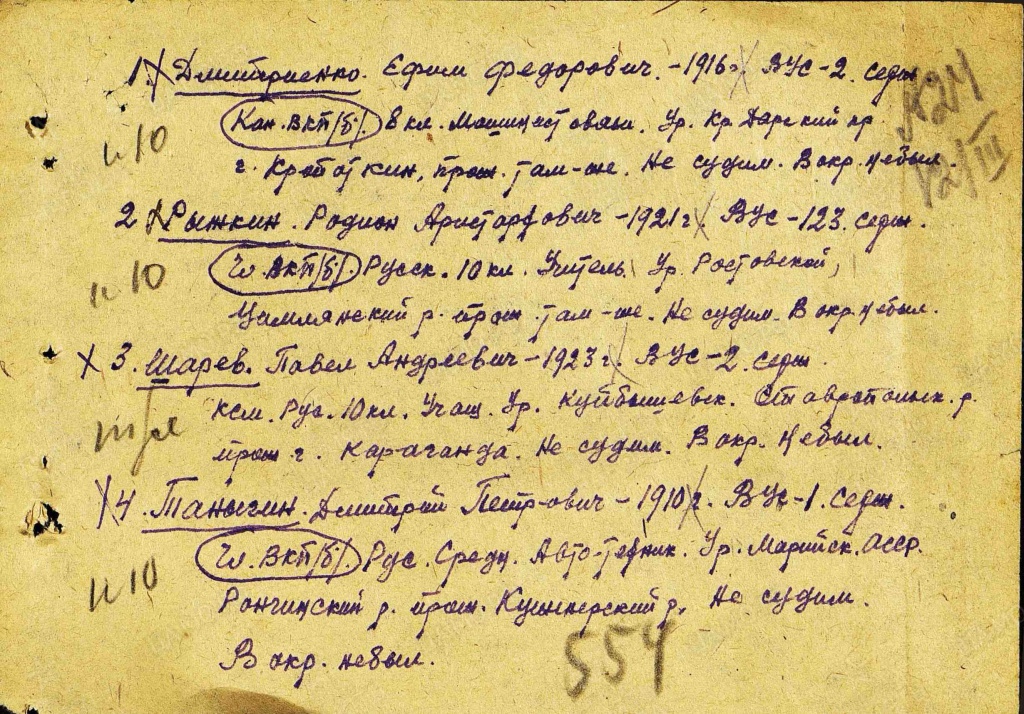 1. Дмитриенко. Ефим Федорович. - 1916 г. ВУС - 2. седж
Кан. ВКП/б/. 8 кл. Ур. Кр. Дарский кр
г. Кропоткин, прож. там-же. Не судим. В окр. небыл.
и 10
№ 24
12/III
2 Рыжкин. Родион Аристархович - 1921 г. ВУС - 123. седж.
Чл. ВКП/б/. Русск. 10 кл. Учитель. Ур. Ростовской,
Цимлянский р. прож. там-же. Не судим. В окр. небыл.
и 10
3. Шарев. Павел Андреевич - 1923 г. ВУС - 2. седж
Ксм. Рус. 10 кл. Учащ. Ур. Куйбышевск. Ставропольск. р.
прож г. Караганда. Не судим. В окр. небыл.
4. Таныгин. Дмитрий Петрович - 1910 г. ВУС - 1. седж.
Чл. ВКП/б/. Рус. Средн. Авто-техник. Ур. Марийск. АССР.
Ронгинский р. прож. Куженерский р. Не судим.
и 10
В окр. небыл.
554